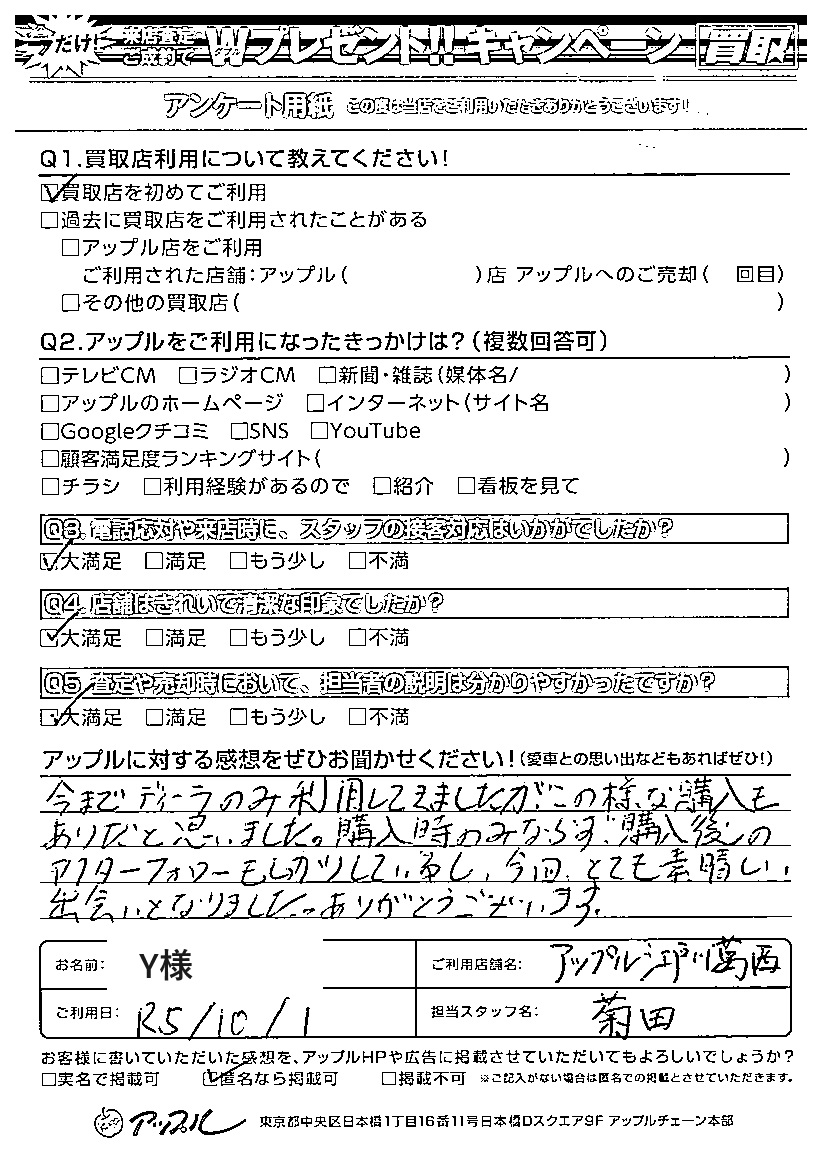 だけ! 来店査定・ご成約で Wプレゼント!! キャンペーン 買取
アンケート用紙 この度は当店をご利用いただきありがとうございます!
Q1.買取店利用について教えてください!
☑買取店を初めてご利用
□過去に買取店をご利用されたことがある
□アップル店をご利用
ご利用された店舗:アップル( )店 アップルへのご売却( 回目)
□その他の買取店( )
Q2.アップルをご利用になったきっかけは?(複数回答可)
□テレビCM □ラジオCM □新聞・雑誌(媒体名/ )
□アップルのホームページ □インターネット(サイト名 )
□Googleクチコミ □SNS □YouTube
□顧客満足度ランキングサイト( )
□チラシ □利用経験があるので □紹介 □看板を見て
Q3.電話応対や来店時に、スタッフの接客対応はいかがでしたか?
☑大満足 □満足 □もう少し □不満
Q4.店舗はきれいで清潔な印象でしたか?
☑大満足 □満足 □もう少し □不満
Q5.査定や売却時において、担当者の説明は分かりやすかったですか?
☑大満足 □満足 □もう少し □不満
アップルに対する感想をぜひお聞かせください!(愛車との思い出などもあればぜひ!)
今までディーラのみ利用してきましたが、この様な購入も
ありだと思いました。購入時のみならず、購入後の
アフターフォローもしっかりしているし、今回、とても素晴しい
出会いとなりました。ありがとうございます。
お名前: Y様 ご利用店舗名: アップル江戸川葛西
ご利用日: R5/10/1 担当スタッフ名: 菊田
お客様に書いていただいた感想を、アップルHPや広告に掲載させていただいてもよろしいでしょうか?
□実名で掲載可 ☑匿名なら掲載可 □掲載不可 ※ご記入がない場合は匿名での掲載とさせていただきます。
アップル 東京都中央区日本橋1丁目16番11号日本橋Dスクエア9F アップルチェーン本部